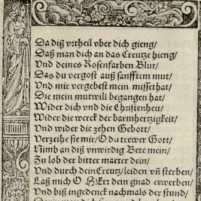 Da diß vrtheil vber dich gieng/
Daß man dich an das Creutze hieng/
Vnd deines Rosenfarben Blut/
Das du vergost auß sanfftem mut/
Vnd mir vergebest mein missethat/
Die mein mutwill begangen hat/
Wider dich vnd die Christenheit/
Wider die werck der barmhertzigkeit/
Vnd wider die zehen Gebott/
Verzeihe sie mir/ O du trewer Gott/
Nimb an diß vnwirdig Bete mein/
Zu lob der bitter marter dein/
Vnd durch dein Creutz/ leiden vñ sterben/
Laß mich O HErr dein gnad erwerben/
Vnd biß ingedenck nachmals der stund/